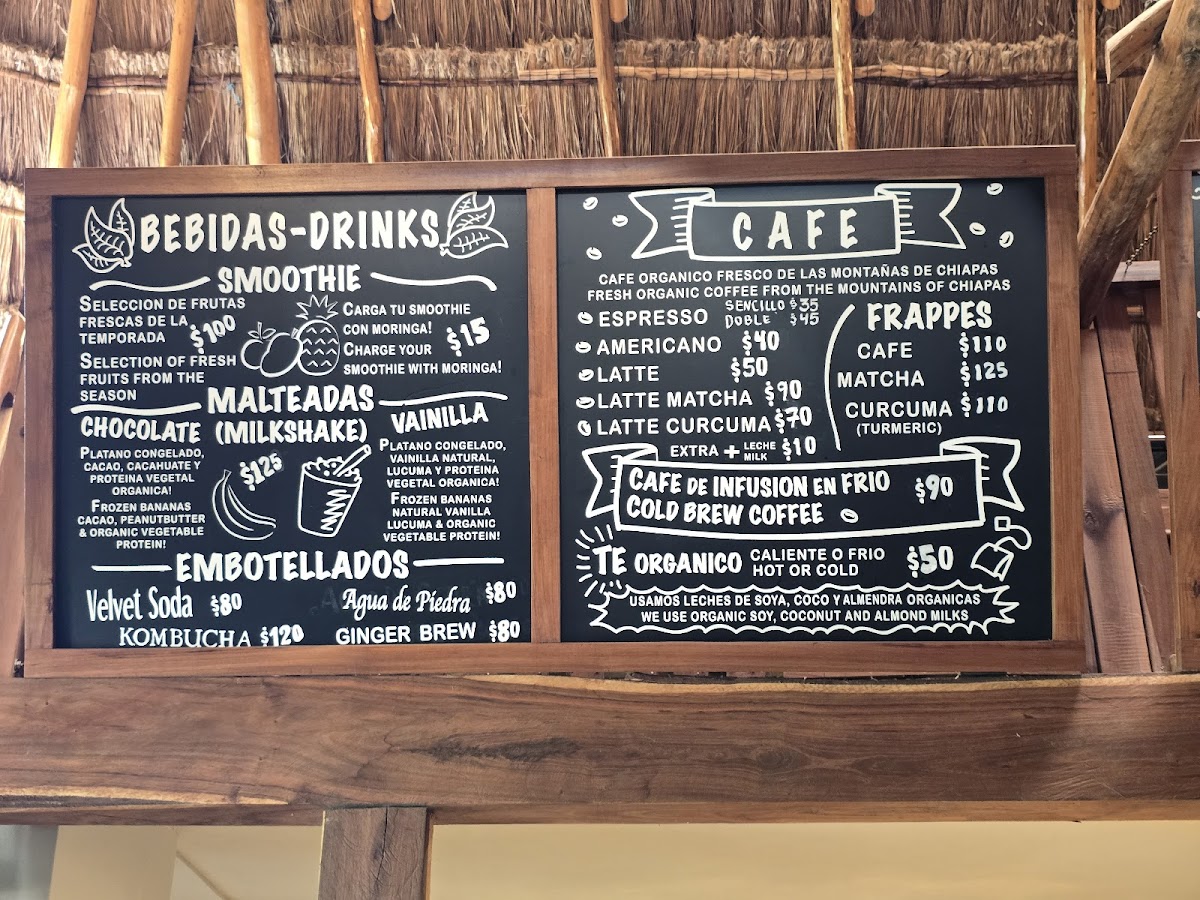 BEBIDAS-DRINKS
SMOOTHIE
SELECCION DE FRUTAS
FRESCAS DE LA
TEMPORADA $100
SELECTION OF FRESH
FRUITS FROM THE
SEASON
CARGA TU SMOOTHIE
CON MORINGA!
CHARGE YOUR $15
SMOOTHIE WITH MORINGA!
MALTEADAS
(MILKSHAKE)
CHOCOLATE
PLATANO CONGELADO,
CACAO, CACAHUATE Y
PROTEINA VEGETAL
ORGANICA!
FROZEN BANANAS
CACAO, PEANUTBUTTER
& ORGANIC VEGETABLE
PROTEIN!
$125
VAINILLA
PLATANO CONGELADO,
VAINILLA NATURAL,
LUCUMA Y PROTEINA
VEGETAL ORGANICA!
FROZEN BANANAS
NATURAL VANILLA
LUCUMA & ORGANIC
VEGETABLE PROTEIN!
EMBOTELLADOS
Velvet Soda $80
Agua de Piedra $80
KOMBUCHA $120
GINGER BREW $80
CAFE
CAFE ORGANICO FRESCO DE LAS MONTAÑAS DE CHIAPAS
FRESH ORGANIC COFFEE FROM THE MOUNTAINS OF CHIAPAS
ESPRESSO SENCILLO $35
DOBLE $45
AMERICANO $40
LATTE $50
LATTE MATCHA $90
LATTE CURCUMA $70
EXTRA + LECHE
MILK $10
FRAPPES
CAFE $110
MATCHA $125
CURCUMA $110
(TURMERIC)
CAFE DE INFUSION EN FRIO
COLD BREW COFFEE $90
TE ORGANICO CALIENTE O FRIO
HOT OR COLD $50
USAMOS LECHES DE SOYA, COCO Y ALMENDRA ORGANICAS
WE USE ORGANIC SOY, COCONUT AND ALMOND MILKS